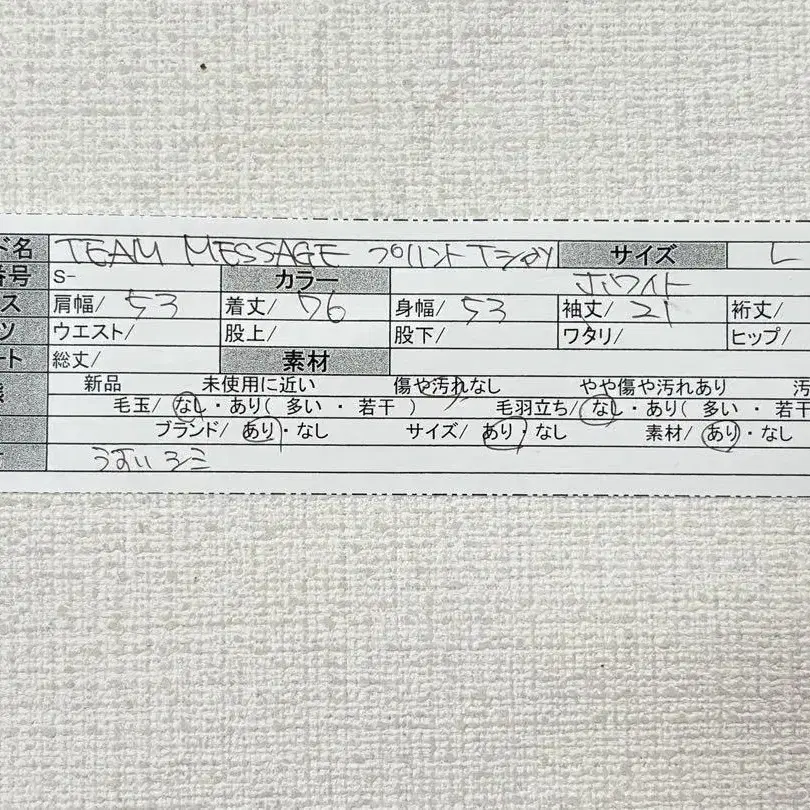 ド名 TEAM MESSAGE プリントTシャツ サイズ L
番号 S- カラー ホワイト
ス 肩幅/ 53 着丈/ 76 身幅/ 53 袖丈/ 21 裄丈/
ツ ウエスト/ 股上/ 股下/ ワタリ/ ヒップ/
ート 総丈/ 素材
態 新品 未使用に近い 傷や汚れなし やや傷や汚れあり 汚
毛玉/ なし・あり( 多い ・ 若干 ) 毛羽立ち/ なし・あり( 多い ・ 若干
ブランド/ あり・なし サイズ/ あり・なし 素材/ あり・なし
うすいシミ